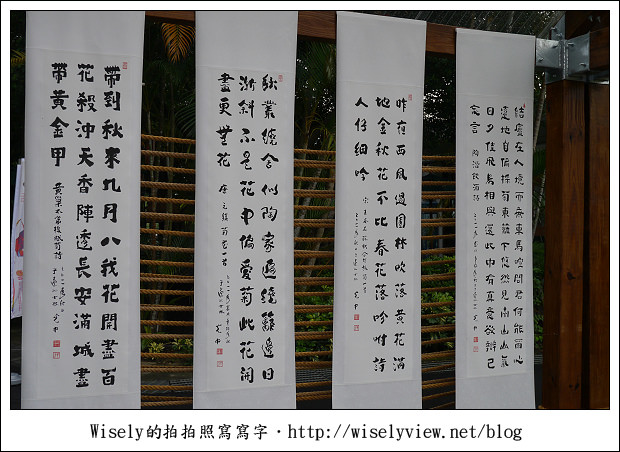 結廬在人境而無車馬喧問君何能爾心
遠地自偏採菊東籬下悠然見南山山氣
日夕佳飛鳥相與還此中有真意欲辯已
忘言 陶潛飲酒詩
昨夜西風過園林吹落黃花滿
地金秋花不比春花落吩咐詩
人仔細吟
秋叢繞舍似陶家遍繞籬邊日
漸斜不是花中偏愛菊此花開
盡更無花 唐 元稹 菊花一首
帶到秋來九月八我花開盡百
花殺沖天香陣透長安滿城盡
帶黃金甲 黃巢不第後賦菊詩
Wisely的拍拍照寫寫字·http://wiselyview.net/blog